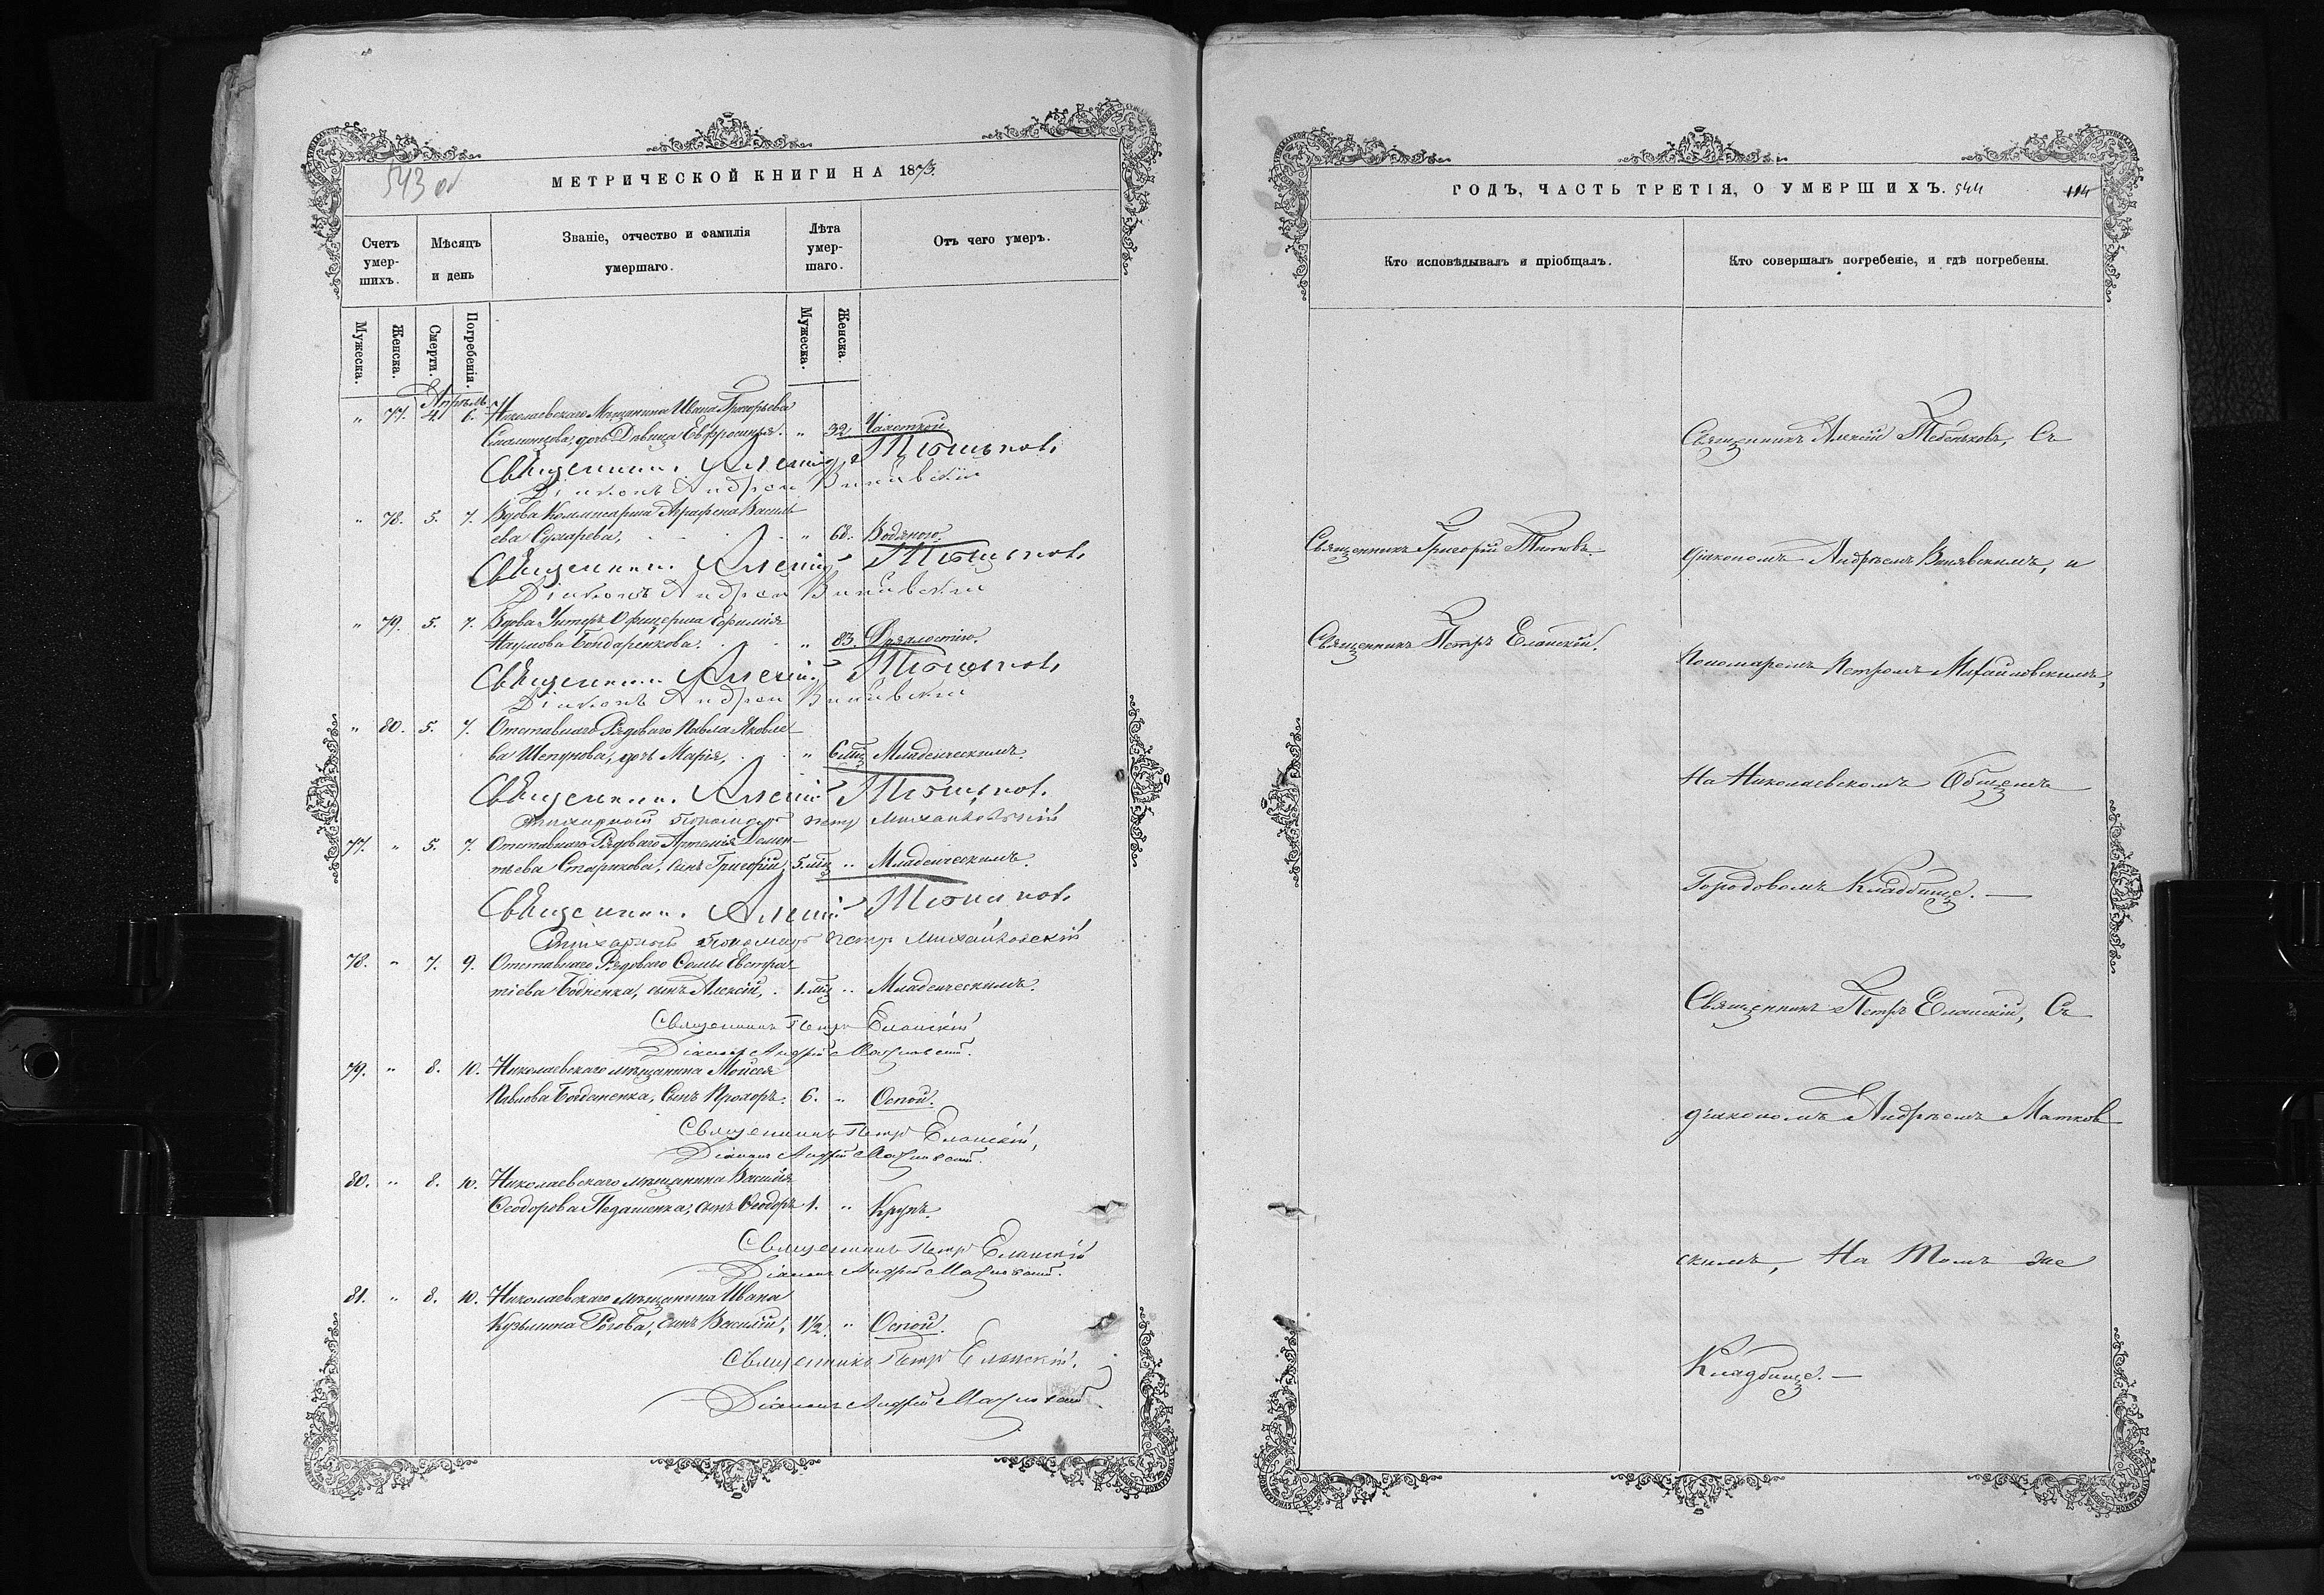 543 об
МЕТРИЧЕСКОЙ КНИГИ НА 1873.
Счетъ умершихъ.
Мѣсяцъ и день
Званіе, отчество и фамилія умершаго.
Лѣта умершаго.
Отъ чего умеръ.
Мужеска.
Женска.
Смерти.
Погребенія.
Мужеска.
Женска.
Апрѣль
" 77. 4. 6. Николаевскаго Мѣщанина Ивана Григорьева
дочь Девица Евфросинья. " 32 Чахоткой
Священникъ Алексій
Діаконъ Андрей
" 78. 5. 7. Вдова Коммисарша Аграфена Василь
ева Сухарева, " 68. Водяного.
Священникъ Алексій
Діаконъ Андрей
" 79. 5. 7. Вдова Унтеръ Офицерша Ефимія
Наумова Бондаренкова. " 83. Дряхлостію.
Священникъ Алексій
Діаконъ Андрей
" 80. 5. 7. Отставнаго Рядоваго Павла Яковле
ва Шепунова, дочь Марія, " 6 мц Младенческимъ.
Священникъ Алексій
Пономарь Петръ Михайловскій
77. " 5. 7. Отставнаго Рядоваго Артемія Демен
тьева Старикова, сынъ Григорій, 5 мц " Младенческимъ.
Священникъ Алексій
Стихарный Пономарь Петръ Михайловскій
78. " 7. 9. Отставнаго Рядоваго Сомы Евстра
тіева Бодненка, сынъ Алексій, 1. мц " Младенческимъ.
Священникъ Петръ Еланскій
Діаконъ Андрей
79. " 8. 10. Николаевскаго мѣщанина Мойсея
Павлова Богданенка, Сынъ Прохоръ. 6. " Оспой.
Священникъ Петръ Еланскій,
Діаконъ Андрей
80. " 8. 10. Николаевскаго мѣщанина Василія
Ѳеодорова Педашенка, сынъ Ѳеодоръ 1. " Крупъ.
Священникъ Петръ Еланскій
Діаконъ Андрей
81. " 8. 10. Николаевскаго мѣщанина Ивана
Кузьмина Рогова, сынъ Василій, 1½. " Оспой.
Священникъ Петръ Еланскій.
Діаконъ Андрей
ГОДЪ, ЧАСТЬ ТРЕТІЯ, О УМЕРШИХЪ. 544
114
Кто исповѣдывалъ и пріобщалъ.
Кто совершалъ погребеніе, и гдѣ погребены.
Священникъ Алексій Тебеньковъ, Съ
Священникъ Григорій Титовъ.
діакономъ Андреемъ Винявскимъ, и
Священникъ Петръ Еланскій.
Пономаремъ Петромъ Михайловскимъ,
На Николаевскомъ Общемъ
Городовомъ Кладбище. —
Священникъ Петръ Еланскій, Съ
діакономъ Андреемъ Матков
скимъ, На Томъ же
Кладбище. —